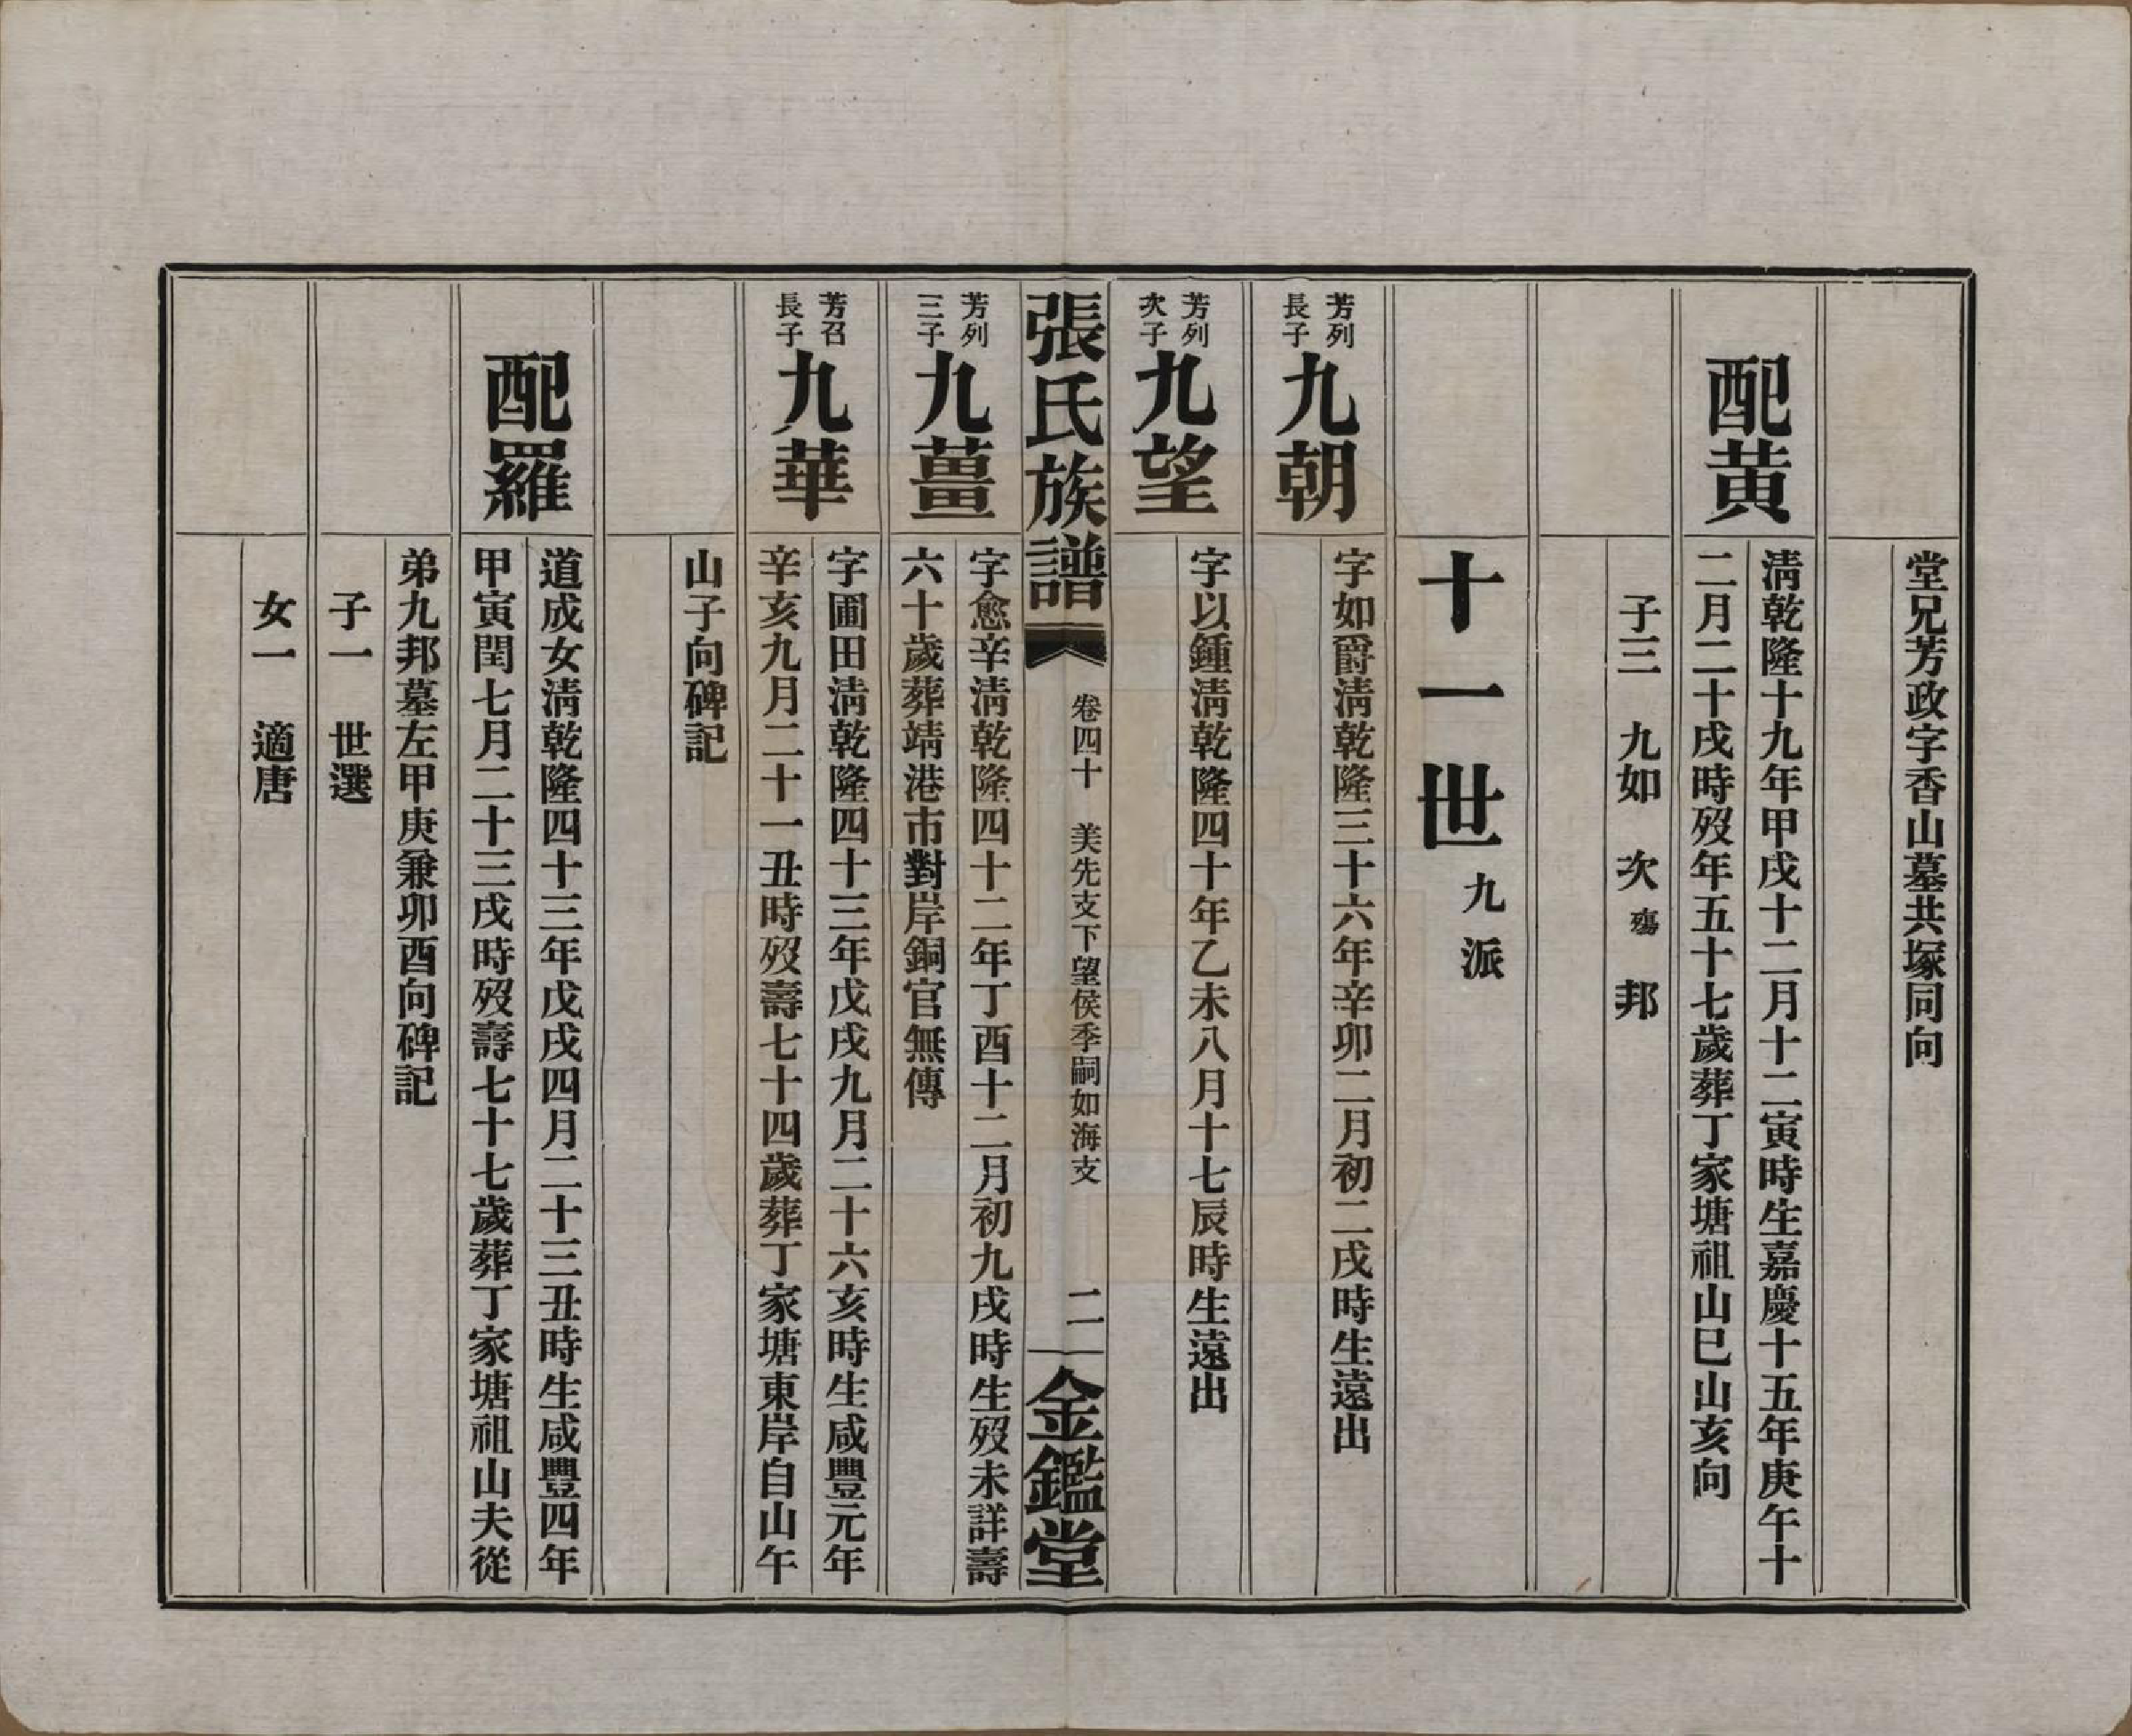 堂兄芳政字香山墓共塚同向
配黄
清乾隆十九年甲戌十二月十二寅時生嘉慶十五年庚午十
二月二十戌時歿年五十七歲葬丁家塘祖山巳山亥向
子三　九如　次殤　邦
十一世九派
芳列
長子
九朝
字如爵清乾隆三十六年辛卯二月初二戌時生遠出
芳列
次子
九望
字以鍾清乾隆四十年乙未八月十七辰時生遠出
張氏族譜
卷四十　美先支下望侯季嗣如海支
二
金鑑堂
芳列
三子
九薑
字愈辛清乾隆四十二年丁酉十二月初九戌時生歿未詳壽
六十歲葬靖港市對岸銅官無傳
芳召
長子
九華
字圃田清乾隆四十三年戊戌九月二十六亥時生咸豐元年
辛亥九月二十一丑時歿壽七十四歲葬丁家塘東岸自山午
山子向碑記
配羅
道成女清乾隆四十三年戊戌四月二十三丑時生咸豐四年
甲寅閏七月二十三戌時歿壽七十七歲葬丁家塘祖山夫從
弟九邦墓左甲庚兼卯酉向碑記
子一　世選
女一　適唐